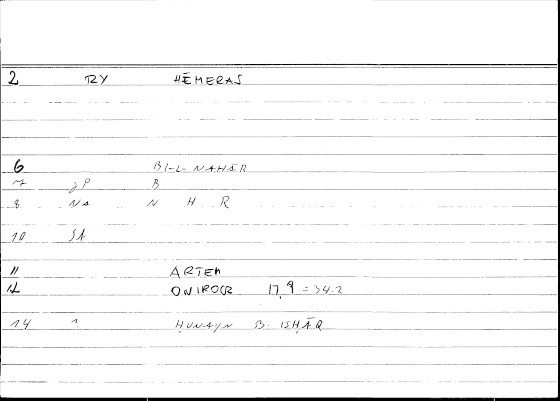 2 RY HĒMERAS
6 BI-L-NAHĀR
7 gP B
8 NA N H R
10 SA
11 ARTEM
12 ONIROCR 17,9 = 34.2
14 ḤUNAYN B. ISḤĀQ